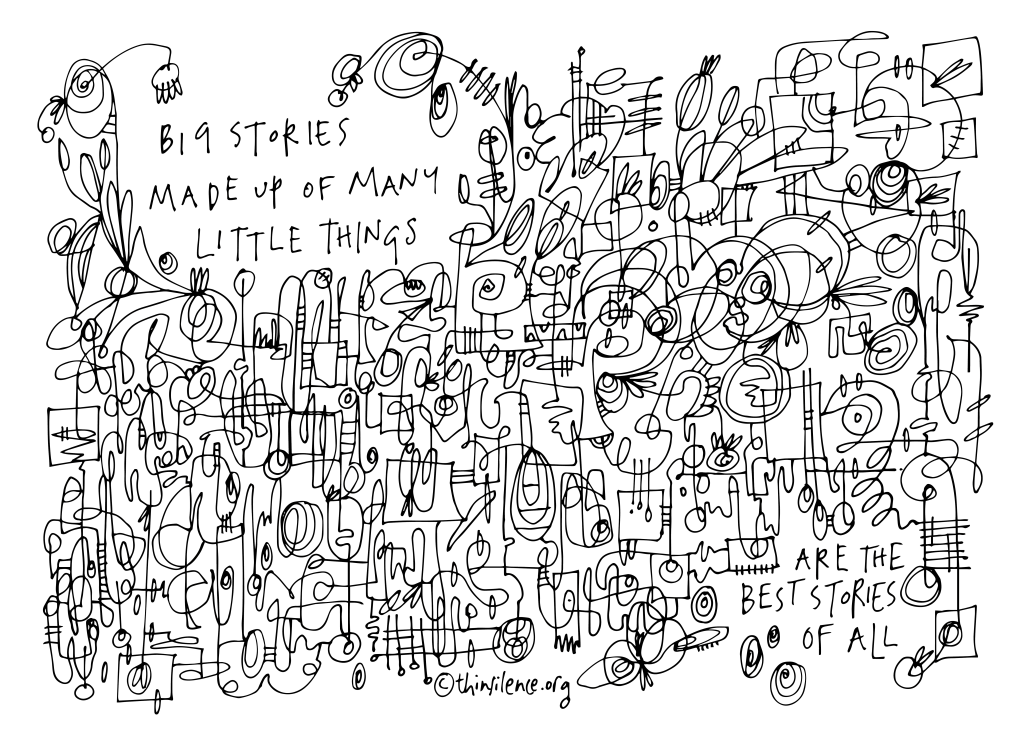 BIG STORIES
MADE UP OF MANY
LITTLE THINGS
ARE THE
BEST STORIES
OF ALL
©thinsilence.org